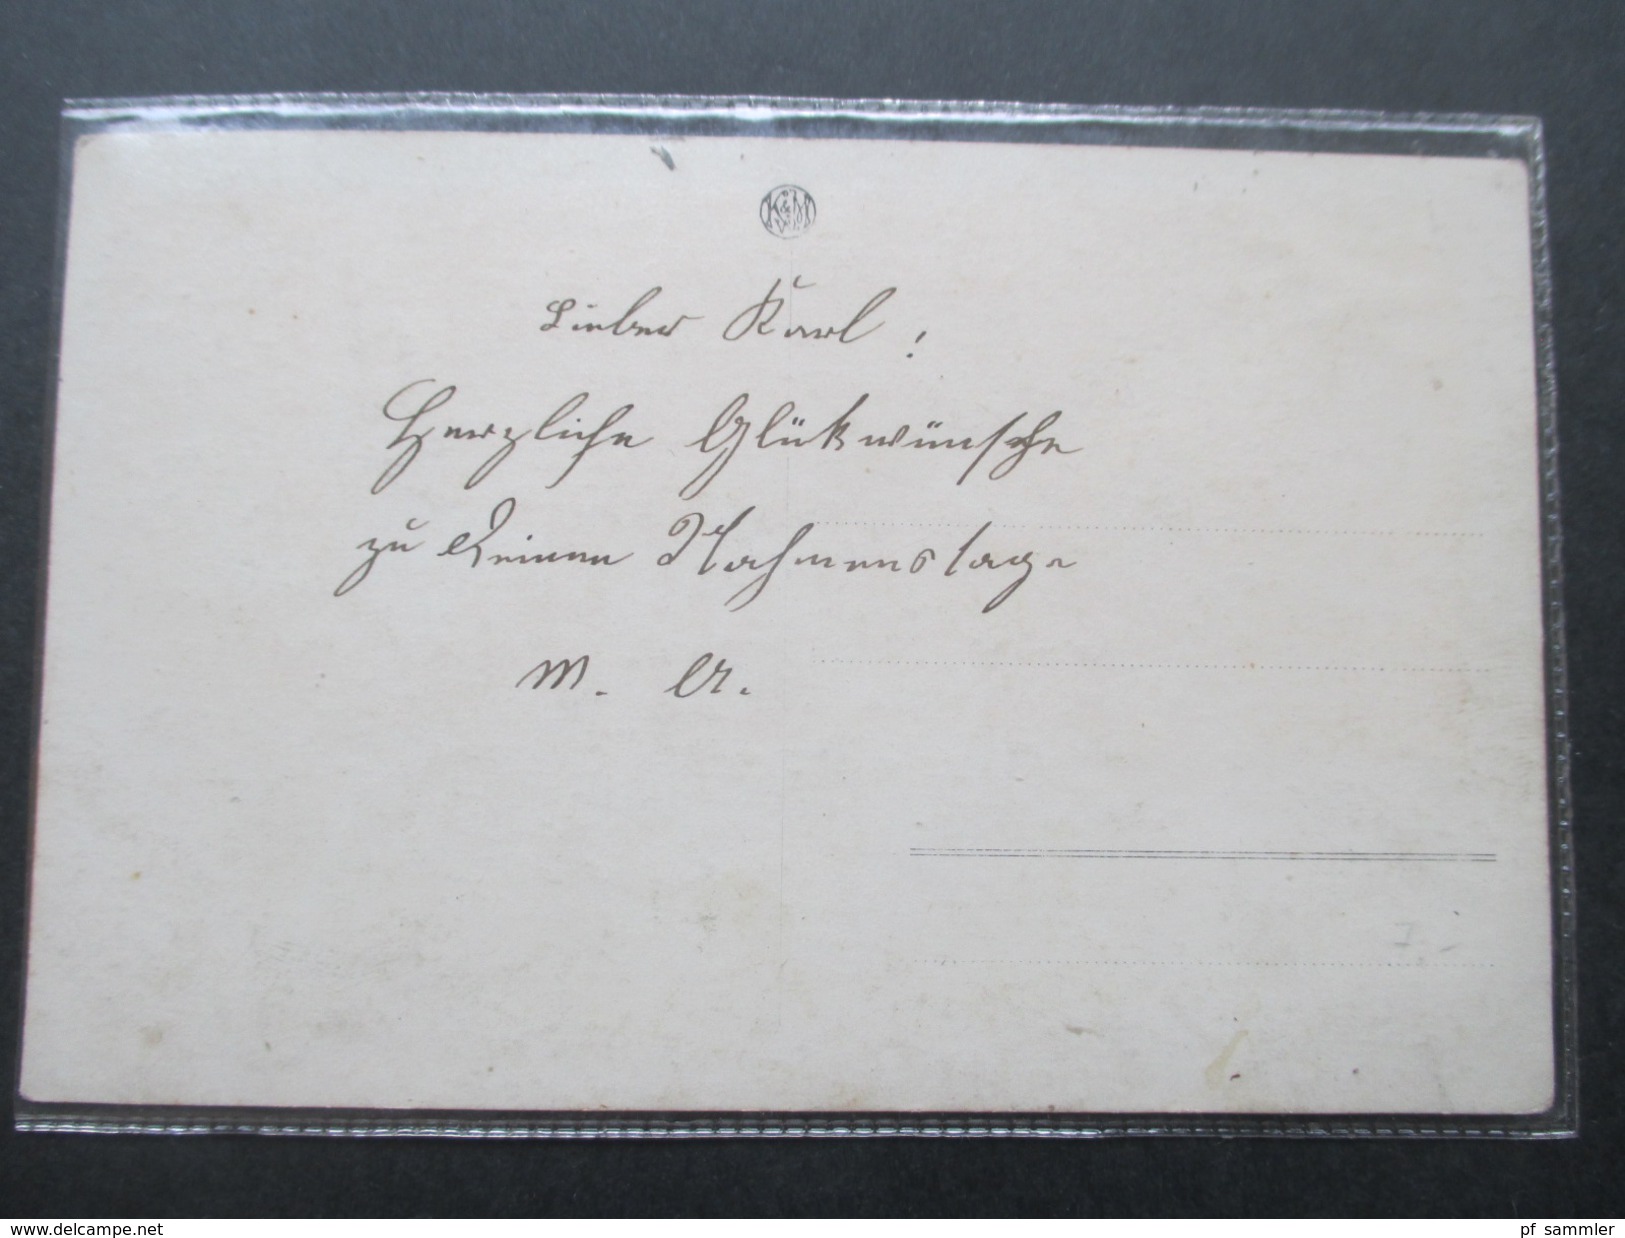 Lieber Karl !
Herzliche Glükwünsche
zu Deinen Nahmenstage
M. A.
www.delcampe.net
pf_sammler